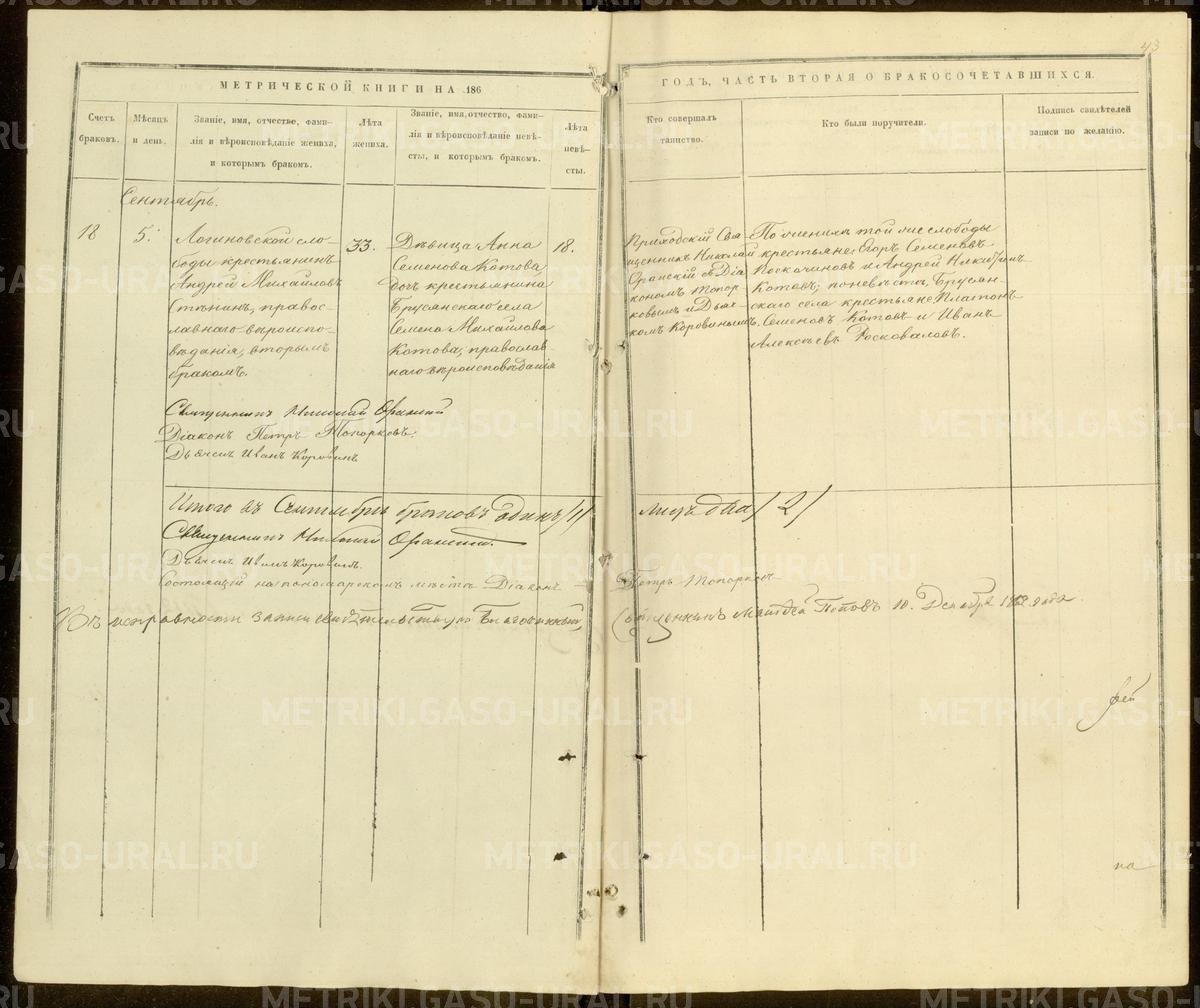 43
МЕТРИЧЕСКОЙ КНИГИ НА 186
Счетъ браковъ.
Мѣсяцъ и день.
Званіе, имя, отчество, фами-
лія и вѣроисповѣданіе жениха,
и которымъ бракомъ.
Лѣта
жениха.
Званіе, имя, отчество, фами-
лія и вѣроисповѣданіе невѣ-
сты, и которымъ бракомъ.
Лѣта
невѣ-
сты.
ГОДЪ, ЧАСТЬ ВТОРАЯ О БРАКОСОЧЕТАВШИХСЯ.
Кто совершалъ
таинство.
Кто были поручители.
Подпись свидѣтелей
записи по желанію.
Сентябрь.
18
5.
Логиновской сло-
боды крестьянинъ
Андрей Михайловъ
правос-
лавнаго вѣроиспо-
вѣданія, вторымъ
бракомъ.
33.
Дѣвица Анна
Семенова Котова
дочь крестьянина
Брусянскаго села
Семена Михайлова
Котова, православ-
наго вѣроисповѣданія
18.
Приходскій Свя-
щенникъ Николай
Оранскій съ Діа-
кономъ Топор-
ковымъ и Дьяч-
комъ Коровинымъ.
По женихѣ той же слободы
крестьяне: Егоръ Семеновъ
и Андрей Никитинъ
Котовъ; по невѣстѣ, Брусян-
скаго села крестьяне Платонъ
Семеновъ Котовъ и Иванъ
Алексѣевъ Росковаловъ.
Священникъ Николай Оранскій
Діаконъ Петръ Топорковъ.
Дьячекъ Иванъ Коровинъ
Итого въ Сентябрѣ браковъ одинъ /1/ лицъ два /2/
Священникъ Николай Оранскій.
Дьячекъ Иванъ Коровинъ.
Состоящій на пономарскомъ мѣстѣ Діаконъ Петръ Топорковъ
Въ исправности записи свидѣтельствую Благочинный, Священникъ Поповъ 10. Декабря года
на
METRIKI.GASO-URAL.RU